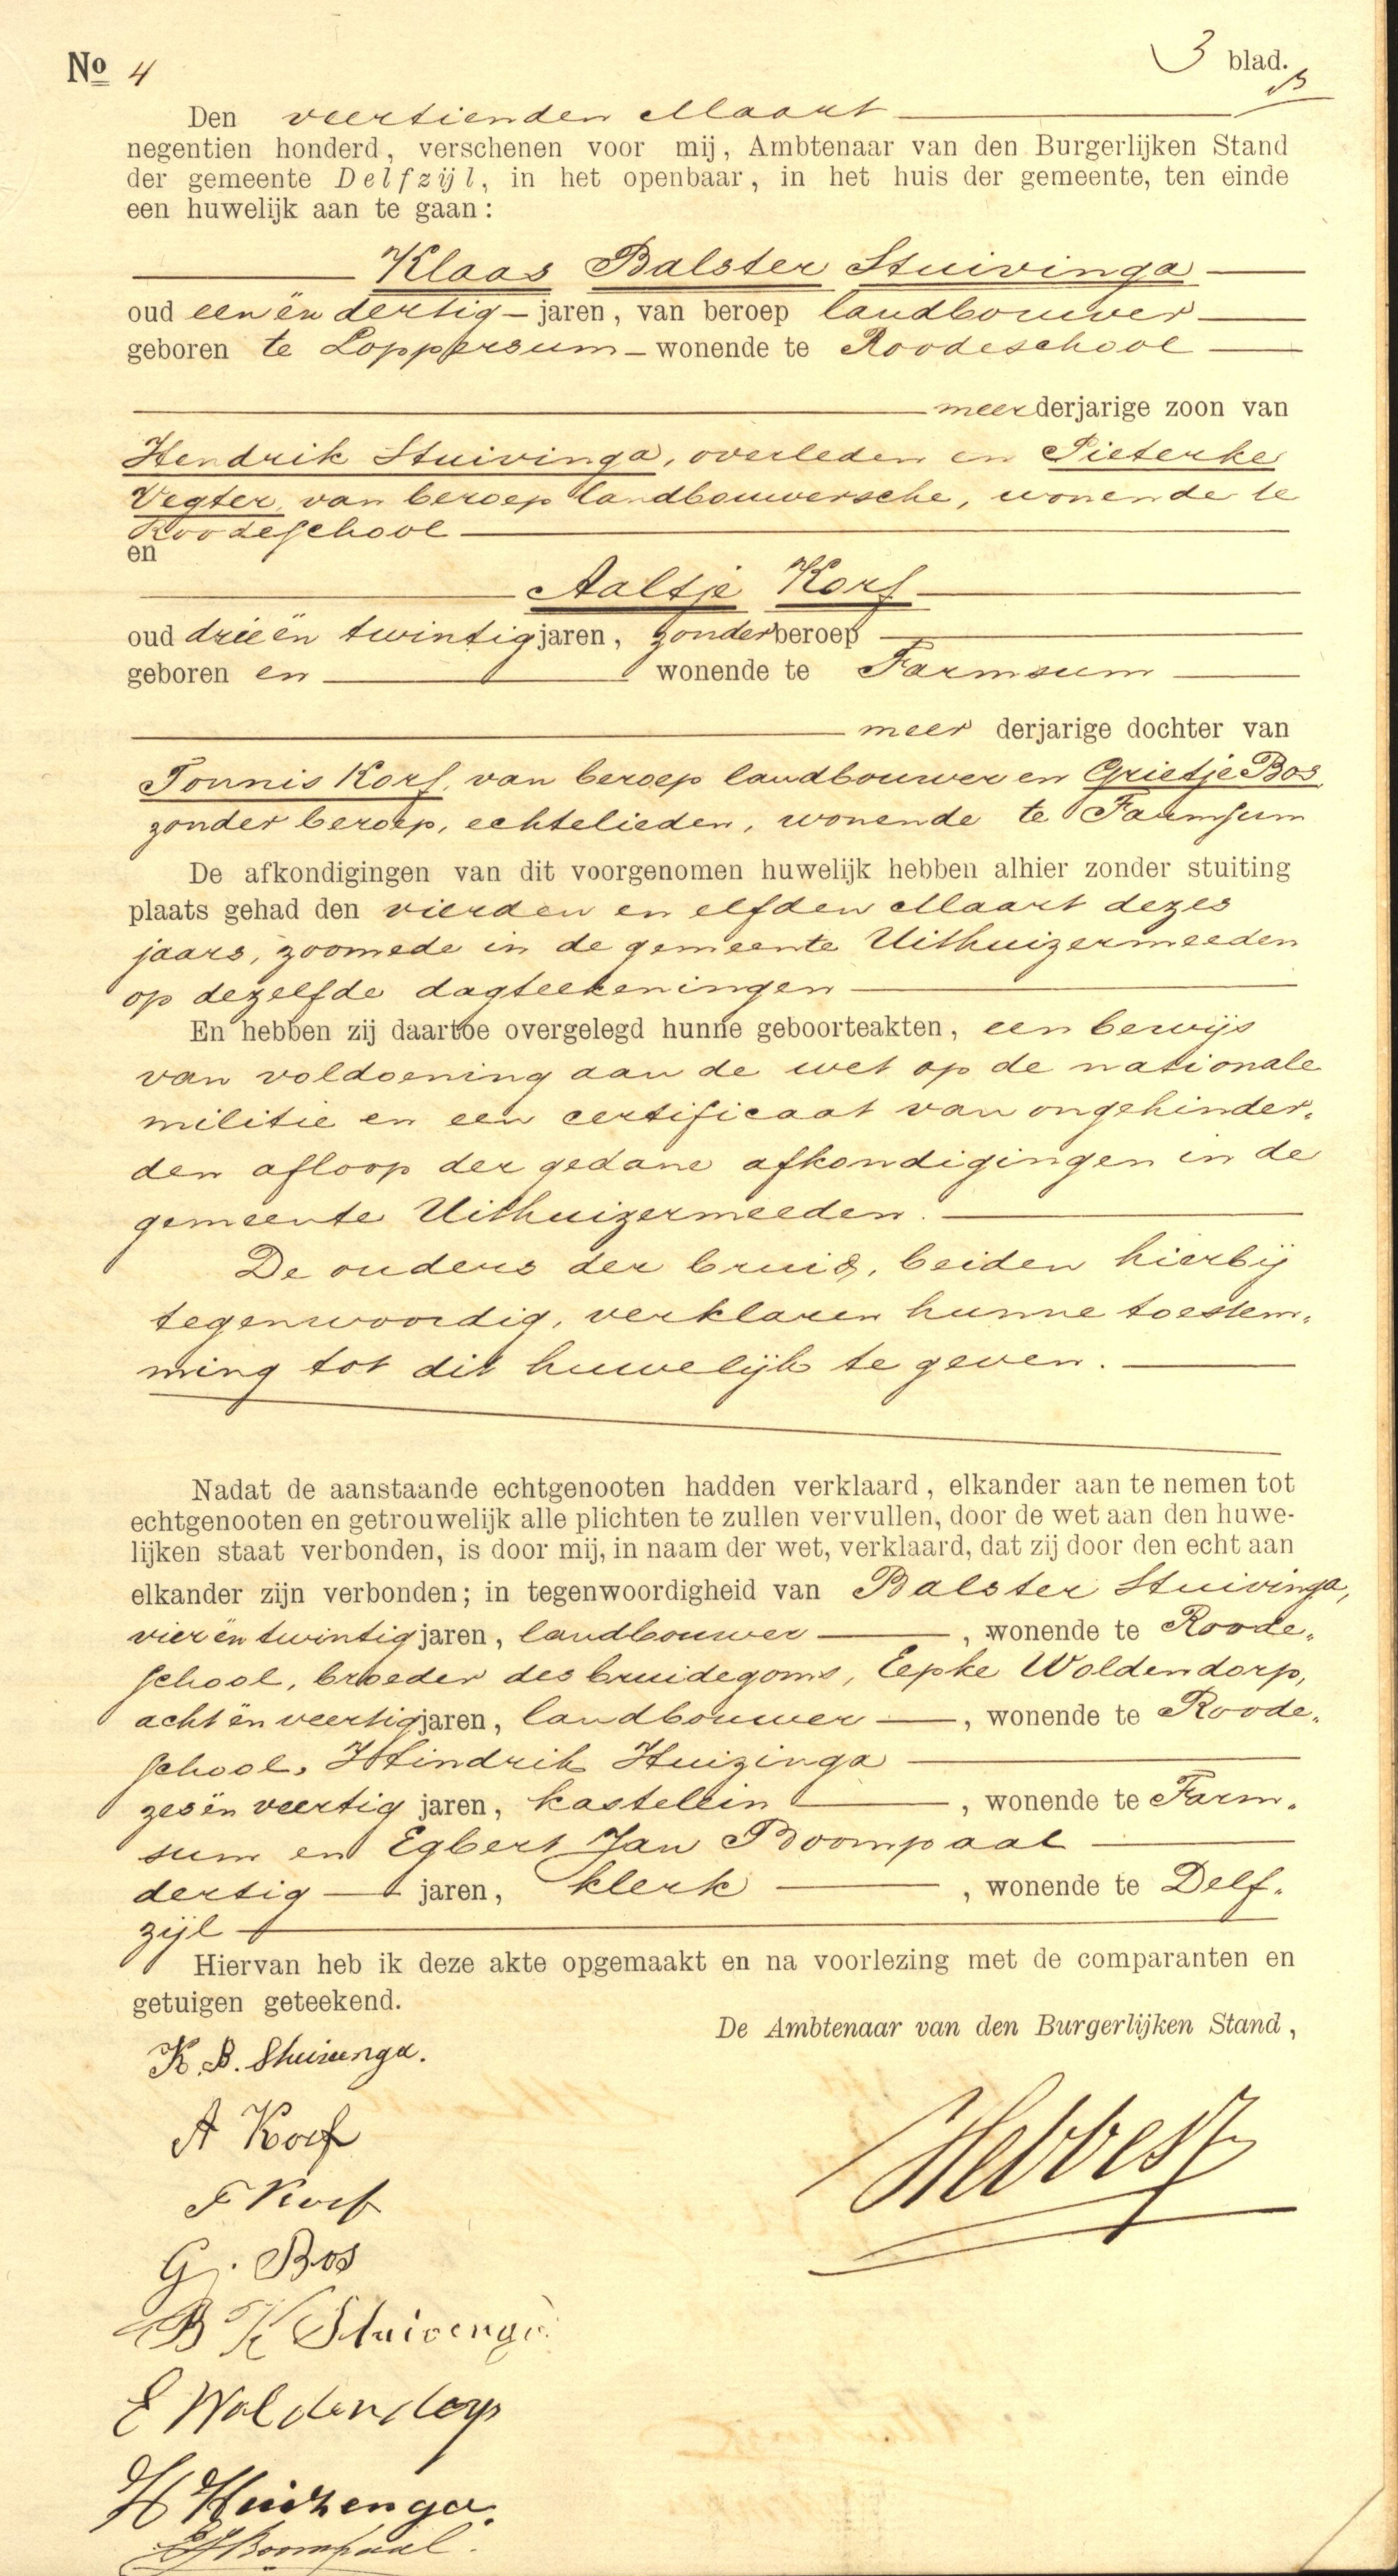 No 4
3 blad.
Den veertienden Maart
negentien honderd, verschenen voor mij, Ambtenaar van den Burgerlijken Stand
der gemeente Delfzijl, in het openbaar, in het huis der gemeente, ten einde
een huwelijk aan te gaan:
Klaas Balster Stuivinga
oud een ën dertig - jaren, van beroep landbouwer
geboren te Loppersum - wonende te Roodeschool
meerderjarige zoon van
Hendrik Stuivinga, overleden en Pieterke
Vegter, van beroep landbouwersche, wonende te
Roodeschool
en
Aaltje Korf
oud drie ën twintig jaren, zonder beroep
geboren en wonende te Farmsum
meer derjarige dochter van
Tonnis Korf, van beroep landbouwer en Grietje Bos,
zonder beroep, echtelieden, wonende te Farmsum
De afkondigingen van dit voorgenomen huwelijk hebben alhier zonder stuiting
plaats gehad den vierden en elfden Maart dezes
jaars, zoomede in de gemeente Uithuizermeeden
op dezelfde dagteekeningen
En hebben zij daartoe overgelegd hunne geboorteakten, een bewijs
van voldoening aan de wet op de nationale
militie en een certificaat van ongehinder-
den afloop der gedane afkondigingen in de
gemeente Uithuizermeeden.
De ouders der bruid, beiden hierbij
tegenwoordig, verklaren hunne toestem-
ming tot dit huwelijk te geven.
Nadat de aanstaande echtgenooten hadden verklaard, elkander aan te nemen tot
echtgenooten en getrouwelijk alle plichten te zullen vervullen, door de wet aan den huwe-
lijken staat verbonden, is door mij, in naam der wet, verklaard, dat zij door den echt aan
elkander zijn verbonden; in tegenwoordigheid van Balster Stuivinga,
vier ën twintig jaren, landbouwer, wonende te Roode-
school, broeder des bruidegoms, Eepke Woldendorp,
acht ën veertig jaren, landbouwer, wonende te Roode-
school, Hindrik Huizinga
zes ën veertig jaren, kastelein, wonende te Farm-
sum en Egbert Jan Boompaal
dertig jaren, klerk, wonende te Delf-
zijl
Hiervan heb ik deze akte opgemaakt en na voorlezing met de comparanten en
getuigen geteekend.
De Ambtenaar van den Burgerlijken Stand,
K. B. Stuivenga.
A Korf
T Korf
G. Bos
B K Stuivenga
E Woldendorp
H Huizenga.
EJBoompaal.